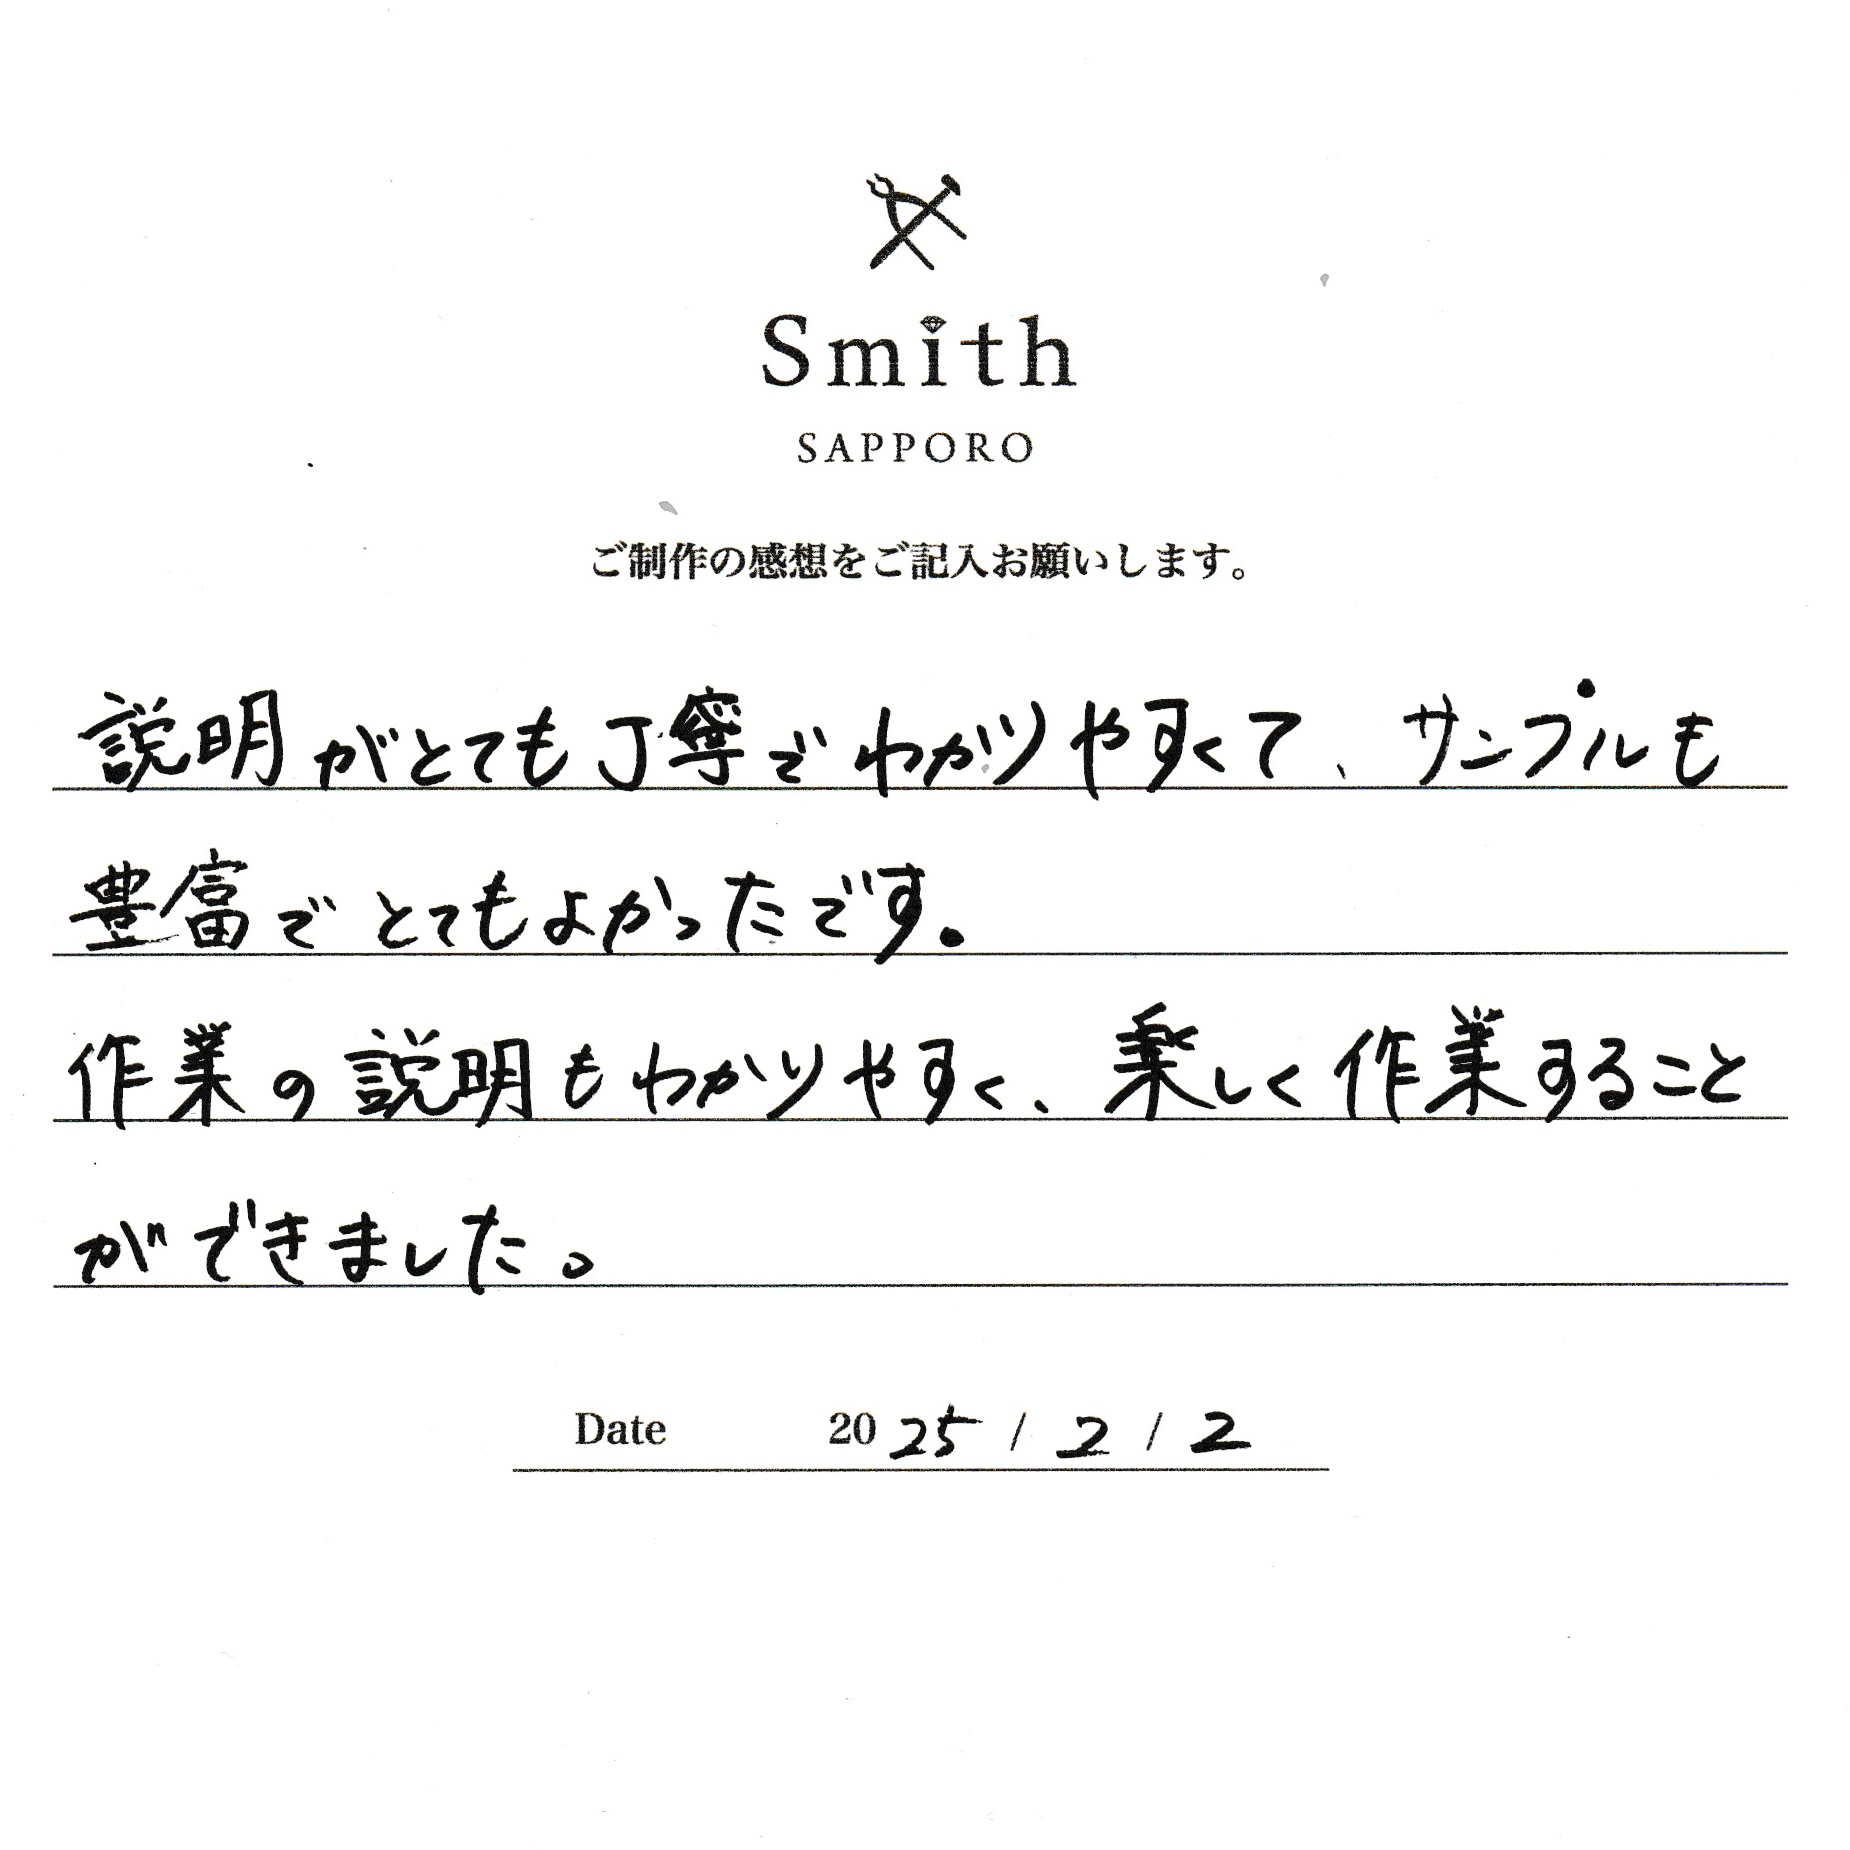 Smith
SAPPORO
ご制作の感想をご記入お願いします。
説明がとても丁寧でわかりやすくて、サンプルも
豊富でとてもよかったです。
作業の説明もわかりやすく、楽しく作業すること
ができました。
Date 2025/2/2